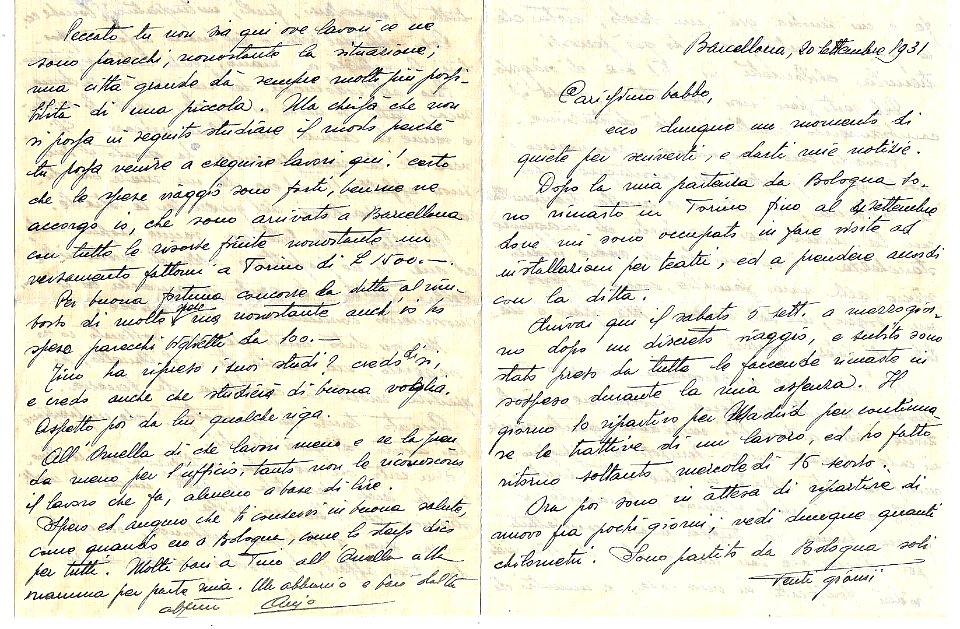 Barcellona, 20 settembre 1931
Carissimo babbo,
ecco dunque un momento di
quiete per scriverti, e darti mie notizie.
Dopo la mia partenza da Bologna so-
no rimasto in Torino fino al 4 settembre
dove mi sono occupato in fare visite ad
installazioni per teatri, ed a prendere accordi
con la ditta.
Arrivai qui il sabato 5 sett. a mezzogior-
no dopo un discreto viaggio, e subito sono
stato preso da tutte le faccende rimaste in
sospeso durante la mia assenza. Il
giorno 10 ripartivo per Madrid per continua-
re le trattive di un lavoro, ed ho fatto
ritorno soltanto mercoledi 16 scorso.
Ora poi sono in attesa di ripartire di
nuovo fra pochi giorni; vedi dunque quanti
chilometri. Sono partito da Bologna soli
venti giorni
Peccato tu non sia qui ove lavori ce ne
sono parecchi, nonostante la situazione;
una città grande dà sempre molte più possi-
bilità di una piccola. Ma chissà che non
si possa in seguito studiare il modo perchè
tu possa venire a eseguire lavori qui! certo
che le spese viaggio sono forti, benone ne
accorgo io, che sono arrivato a Barcellona
con tutte le risorse finite nonostante un
versamento fattomi a Torino di £ 1500.—
Per buona fortuna concorse la ditta al rim-
borso di molte spese ma nonostante anch'io ho
speso parecchi biglietti da 100.—
Tino ha ripreso i suoi studi? credo di si,
e credo anche che studierà di buona voglia.
Aspetto poi da lui qualche riga.
All'Ornella di che lavori meno e se la pren
da meno per l'ufficio; tanto non le riconoscono
il lavoro che fa, almeno a base di lire.
Spero ed auguro che ti conservi in buona salute,
come quando ero a Bologna, come lo stesso dico
per tutti. Molti baci a Tino all'Ornella alla
mamma per parte mia. Un abbraccio e baci dal tuo